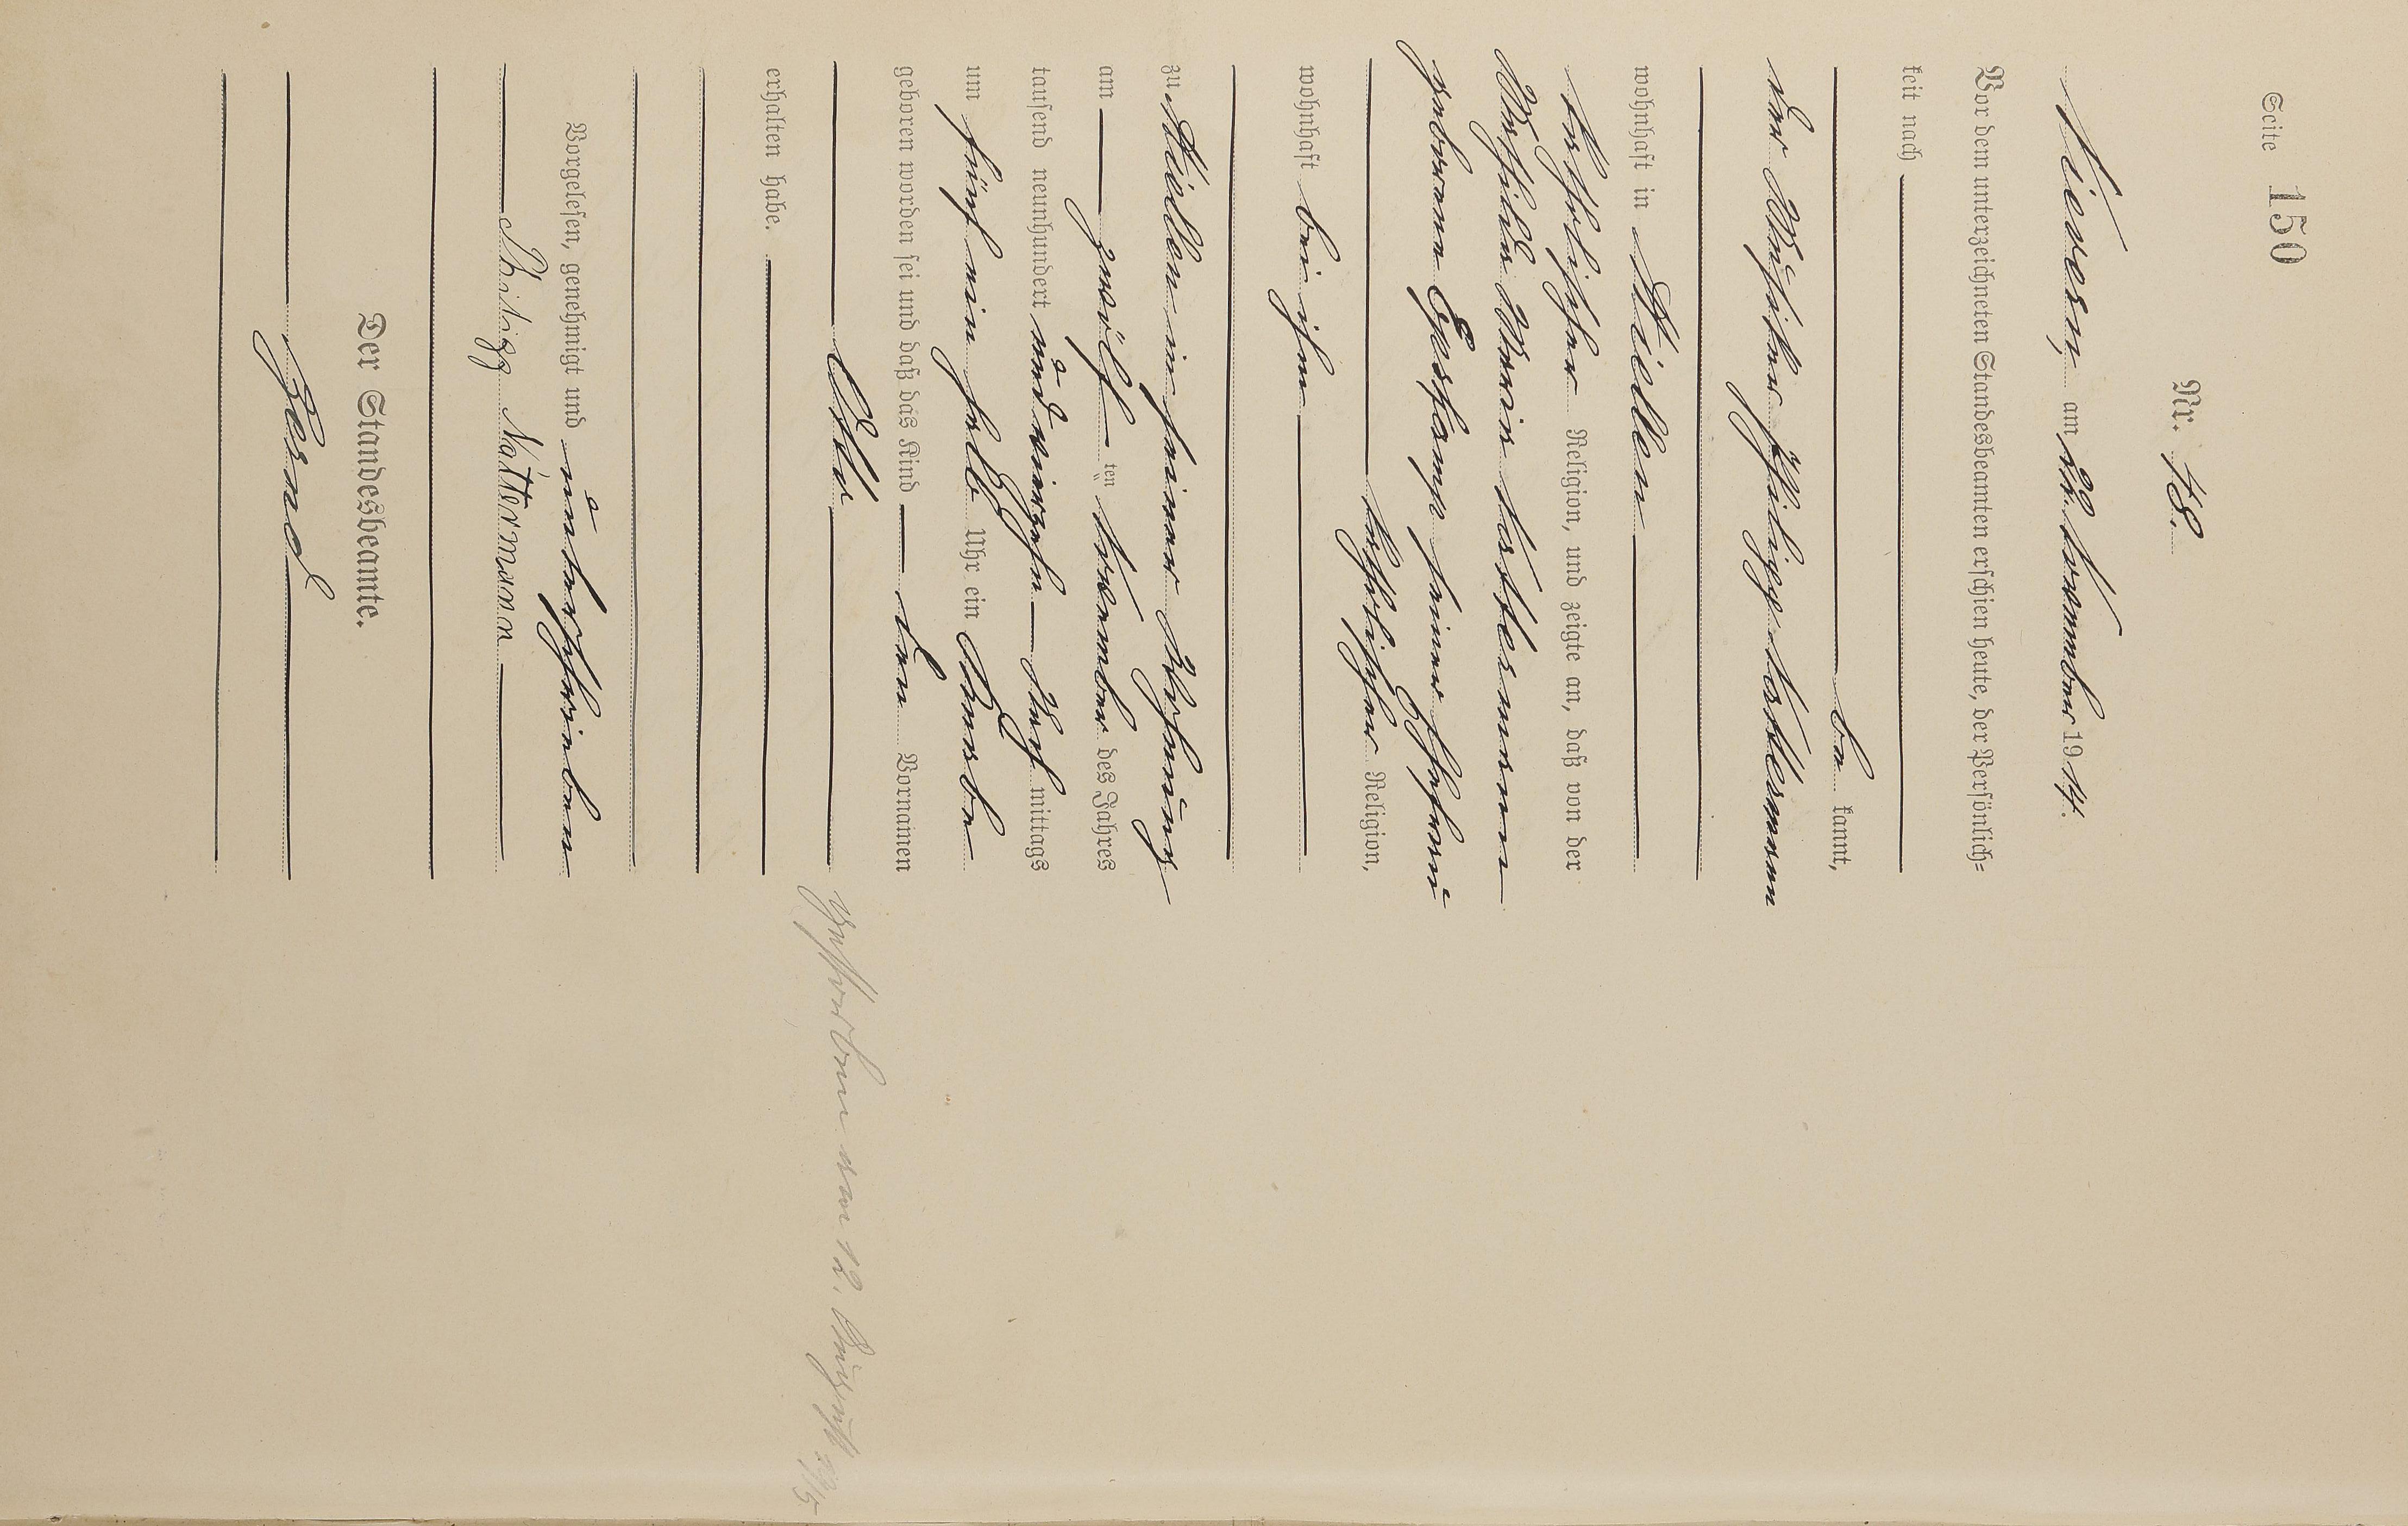 Seite 150
Nr. 48.
Nievern, am November 1914.
Vor dem unterzeichneten Standesbeamten erschien heute, der Persönlich=
keit nach
be kannt,
der Philipp Nattermann
wohnhaft in Miellen
katholischer Religion, und zeigte an, daß von der
Maria Nattermann
geborene seiner Ehefrau
katholischer Religion,
wohnhaft bei ihm
zu Miellen in seiner Wohnung
am zwölf ten November des Jahres
tausend neunhundert und vierzehn Nach mittags
um fünf ein halb Uhr ein Knabe
geboren worden sei und daß das Kind den Vornamen
Otto
erhalten habe.
Gestorben am 12. August 1915
Vorgelesen, genehmigt und unterschrieben
Philipp Nattermann
Der Standesbeamte.